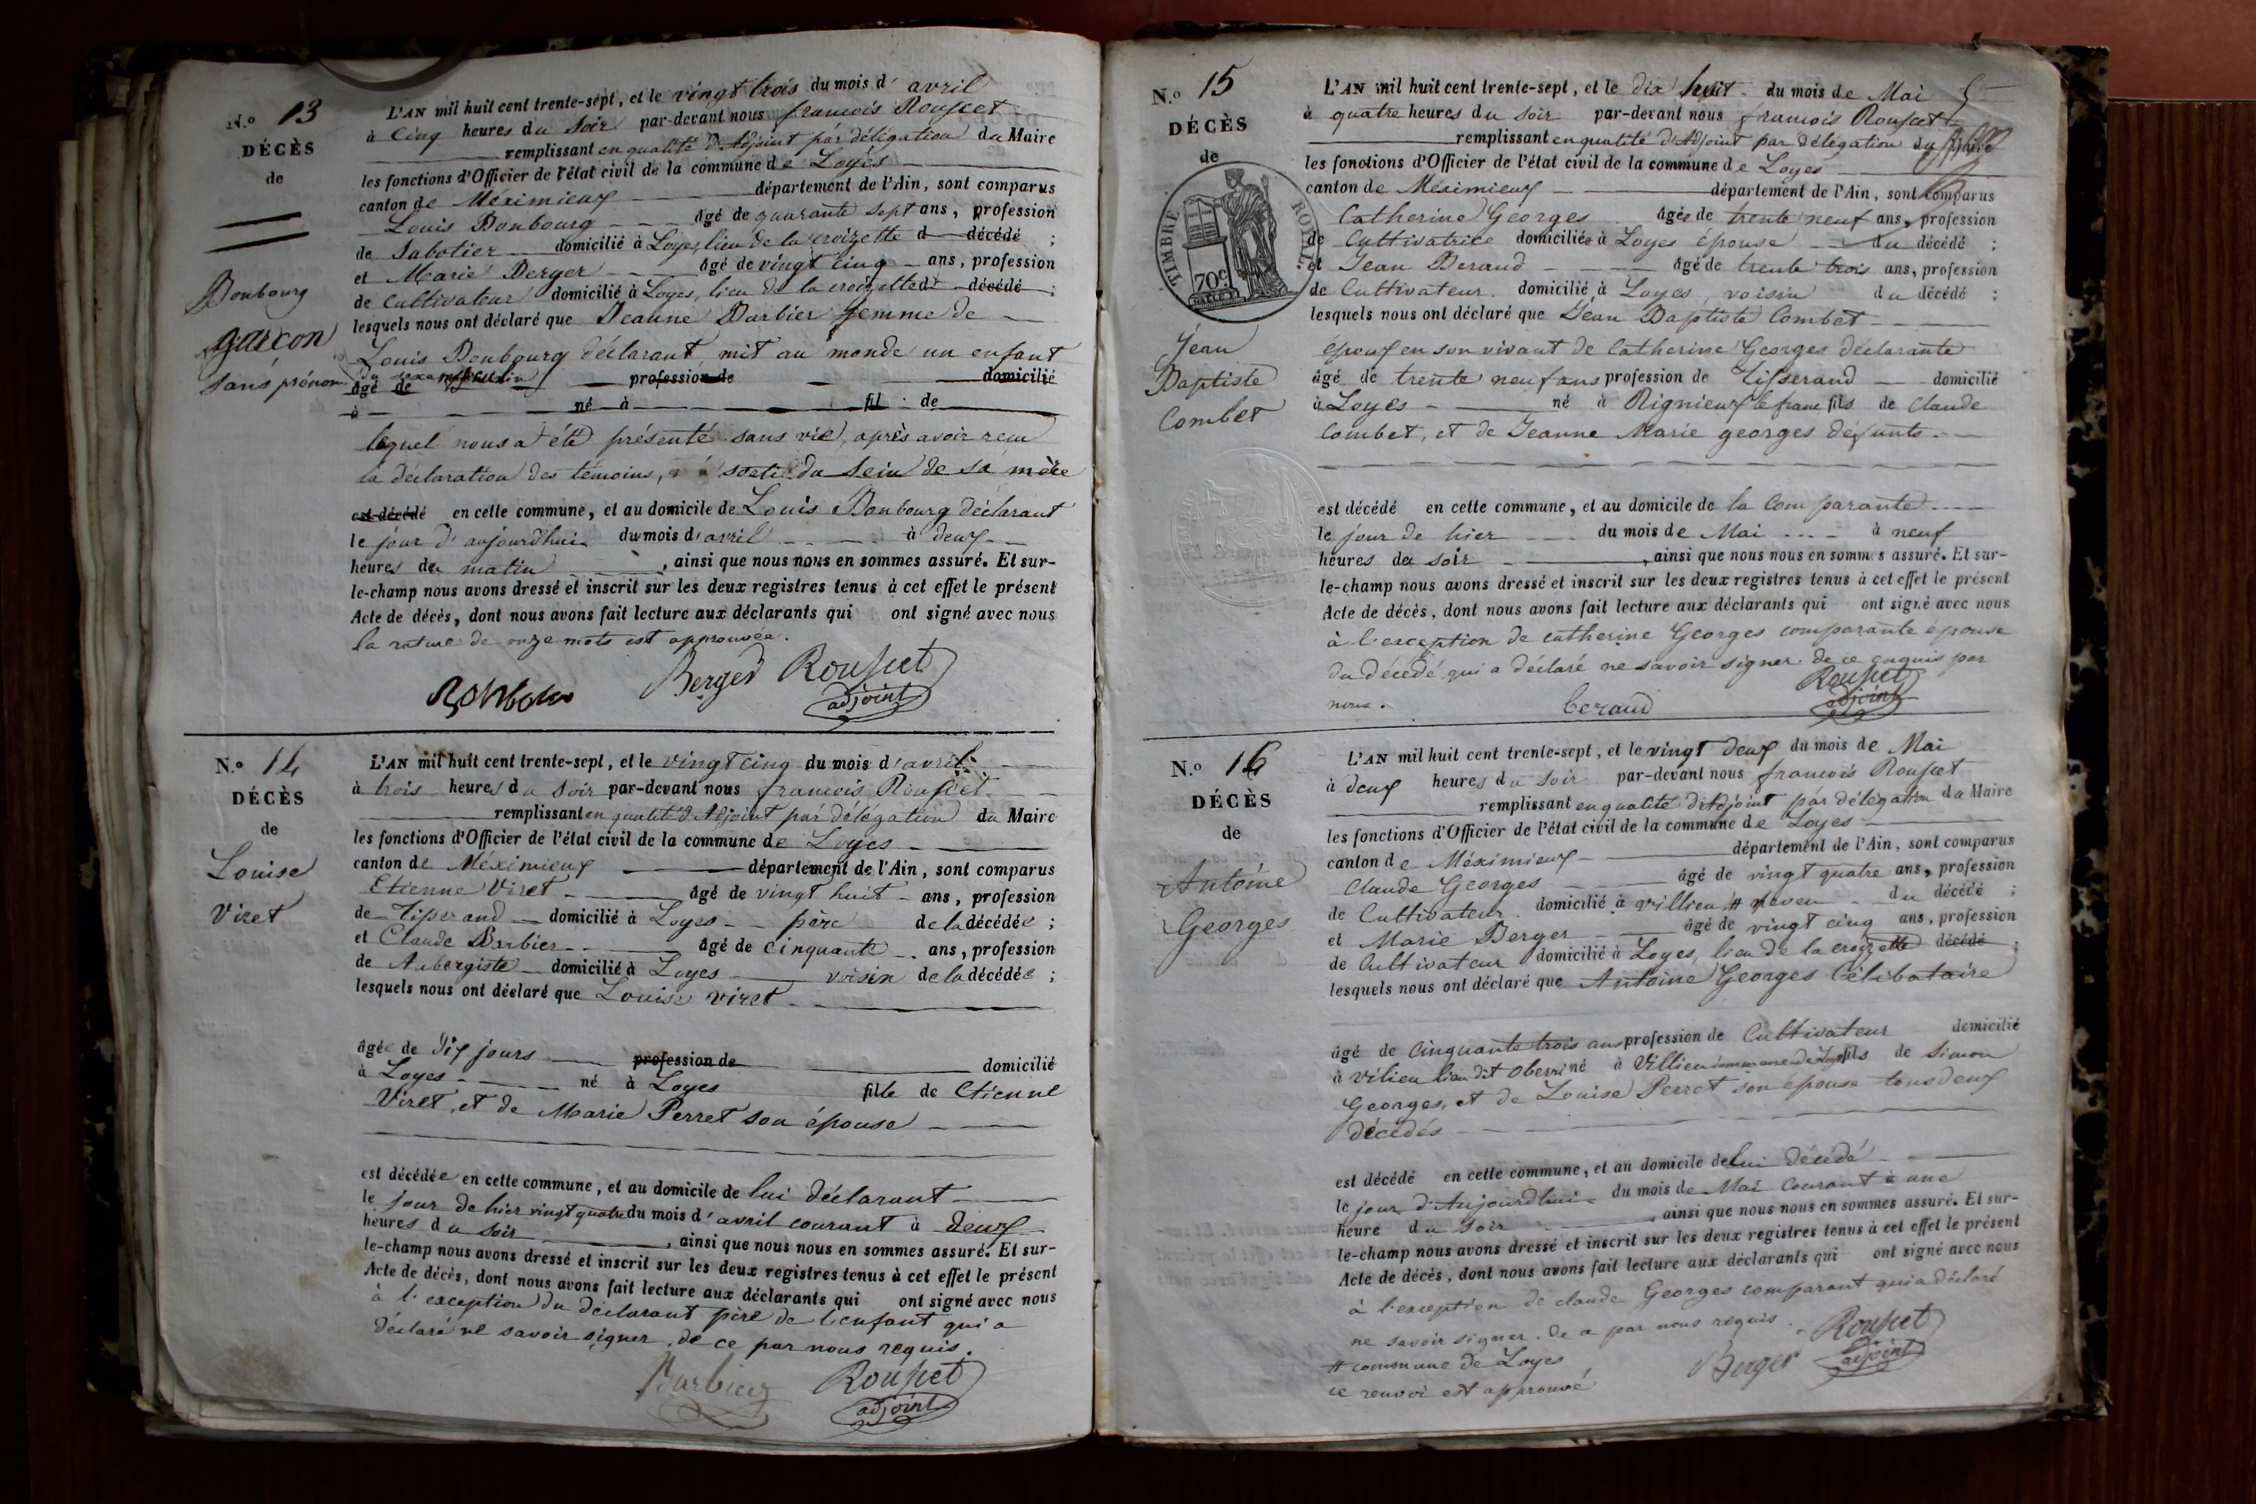 N.o 13
DÉCÈS
de
Bonbourg
garçon
sans prénom
L'AN mil huit cent trente-sept, et le vingt trois du mois d' avril
à Cinq heures du soir par-devant nous francois Rousset
remplissant en qualité d'Adjoint par délégation du Maire
les fonctions d'Officier de l'état civil de la commune de Loyes
canton de Méximieux département de l'Ain, sont comparus
Louis Bonbourg âgé de quarante sept ans, profession
de Sabotier domicilié à Loyes, lieu de la croizette d décédé ;
et Marie Berger âgé de vingt cinq ans, profession
de Cultivateur domicilié à Loyes, lieu de la croizette d décédé ;
lesquels nous ont déclaré que Jeanne Barbier femme de
Louis Bonbourg déclarant, mit au monde un enfant
du sexe masculin
âgé de profession de domicilié
à né à fil de
lequel nous a été présenté sans vie, après avoir reçu
la déclaration des témoins, sorti du sein de sa mère
est décédé en cette commune, et au domicile de Louis Bonbourg déclarant
le jour d'aujourdhui du mois d'avril à deux
heures du matin , ainsi que nous nous en sommes assuré. Et sur-
le-champ nous avons dressé et inscrit sur les deux registres tenus à cet effet le présent
Acte de décès, dont nous avons fait lecture aux déclarants qui ont signé avec nous
la rature de onze mots est approuvée.
Berger Rousset
adjoint
N.o 14
DÉCÈS
de
Louise
Viret
L'AN mil huit cent trente-sept, et le vingt cinq du mois d'avril
à trois heures du soir par-devant nous francois Rousset
remplissant en qualité d'Adjoint par délégation du Maire
les fonctions d'Officier de l'état civil de la commune de Loyes
canton de Méximieux département de l'Ain, sont comparus
Etienne Viret âgé de vingt huit ans, profession
de Tisserand domicilié à Loyes père de la décédée ;
et Claude Barbier âgé de cinquante ans, profession
de Aubergiste domicilié à Loyes voisin de la décédée ;
lesquels nous ont déclaré que Louise viret
âgée de dix jours profession de domicilié
à Loyes né à Loyes fille de Etienne
Viret, et de Marie Perret son épouse
est décédée en cette commune, et au domicile de lui déclarant
le jour de hier vingt quatre du mois d'avril courant à deux
heures du soir , ainsi que nous nous en sommes assuré. Et sur-
le-champ nous avons dressé et inscrit sur les deux registres tenus à cet effet le présent
Acte de décès, dont nous avons fait lecture aux déclarants qui ont signé avec nous
à l'exception du déclarant père de l'enfant qui a
déclaré ne savoir signer, de ce par nous requis.
Barbier Rousset
adjoint
N.o 15
DÉCÈS
de
TIMBRE ROYAL
70 c
Jean
Baptiste
Combet
L'AN mil huit cent trente-sept, et le dix huit du mois de Mai
à quatre heures du soir par-devant nous francois Rousset
remplissant en qualité d'Adjoint par délégation du Maire
les fonctions d'Officier de l'état civil de la commune de Loyes
canton de Méximieux département de l'Ain, sont comparus
Catherine Georges âgée de trente neuf ans, profession
de Cultivatrice domiciliée à Loyes épouse du décédé ;
et Jean Beraud âgé de trente trois ans, profession
de Cultivateur domicilié à Loyes, voisin du décédé ;
lesquels nous ont déclaré que Jean Baptiste Combet
époux en son vivant de Catherine Georges déclarante
âgé de trente neuf ans profession de Tisserand domicilié
à Loyes né à Rignieux le franc fils de Claude
Combet, et de Jeanne Marie georges défunts.
est décédé en cette commune, et au domicile de la Comparante
le jour de hier du mois de Mai à neuf
heures du soir , ainsi que nous nous en sommes assuré. Et sur-
le-champ nous avons dressé et inscrit sur les deux registres tenus à cet effet le présent
Acte de décès, dont nous avons fait lecture aux déclarants qui ont signé avec nous
à l'exception de catherine Georges comparante épouse
du décédé qui a déclaré ne savoir signer de ce enquis par
nous.
beraud Rousset
adjoint
N.o 16
DÉCÈS
de
Antoine
Georges
L'AN mil huit cent trente-sept, et le vingt deux du mois de Mai
à deux heures du soir par-devant nous francois Rousset
remplissant en qualité d'Adjoint par délégation du Maire
les fonctions d'Officier de l'état civil de la commune de Loyes
canton de Méximieux département de l'Ain, sont comparus
Claude Georges âgé de vingt quatre ans, profession
de Cultivateur domicilié à villieu # neveu du décédé ;
et Marie Berger âgé de vingt cinq ans, profession
de Cultivateur domicilié à Loyes, lieu de la croizette décédé ;
lesquels nous ont déclaré que Antoine Georges Célibataire
âgé de Cinquante trois ans profession de Cultivateur domicilié
à vilieu lieu dit né à Villieu commune de Loyes fils de Simon
Georges, et de Louise Perret son épouse tous deux
décédés
est décédé en cette commune, et au domicile de lui décédé
le jour d'Aujourdhui du mois de Mai Courant à une
heure du soir , ainsi que nous nous en sommes assuré. Et sur-
le-champ nous avons dressé et inscrit sur les deux registres tenus à cet effet le présent
Acte de décès, dont nous avons fait lecture aux déclarants qui ont signé avec nous
à l'exception de claude Georges comparant qui a déclaré
ne savoir signer. de ce par nous requis.
# commune de Loyes
ce renvoi est approuvé
Berger Rousset
adjoint